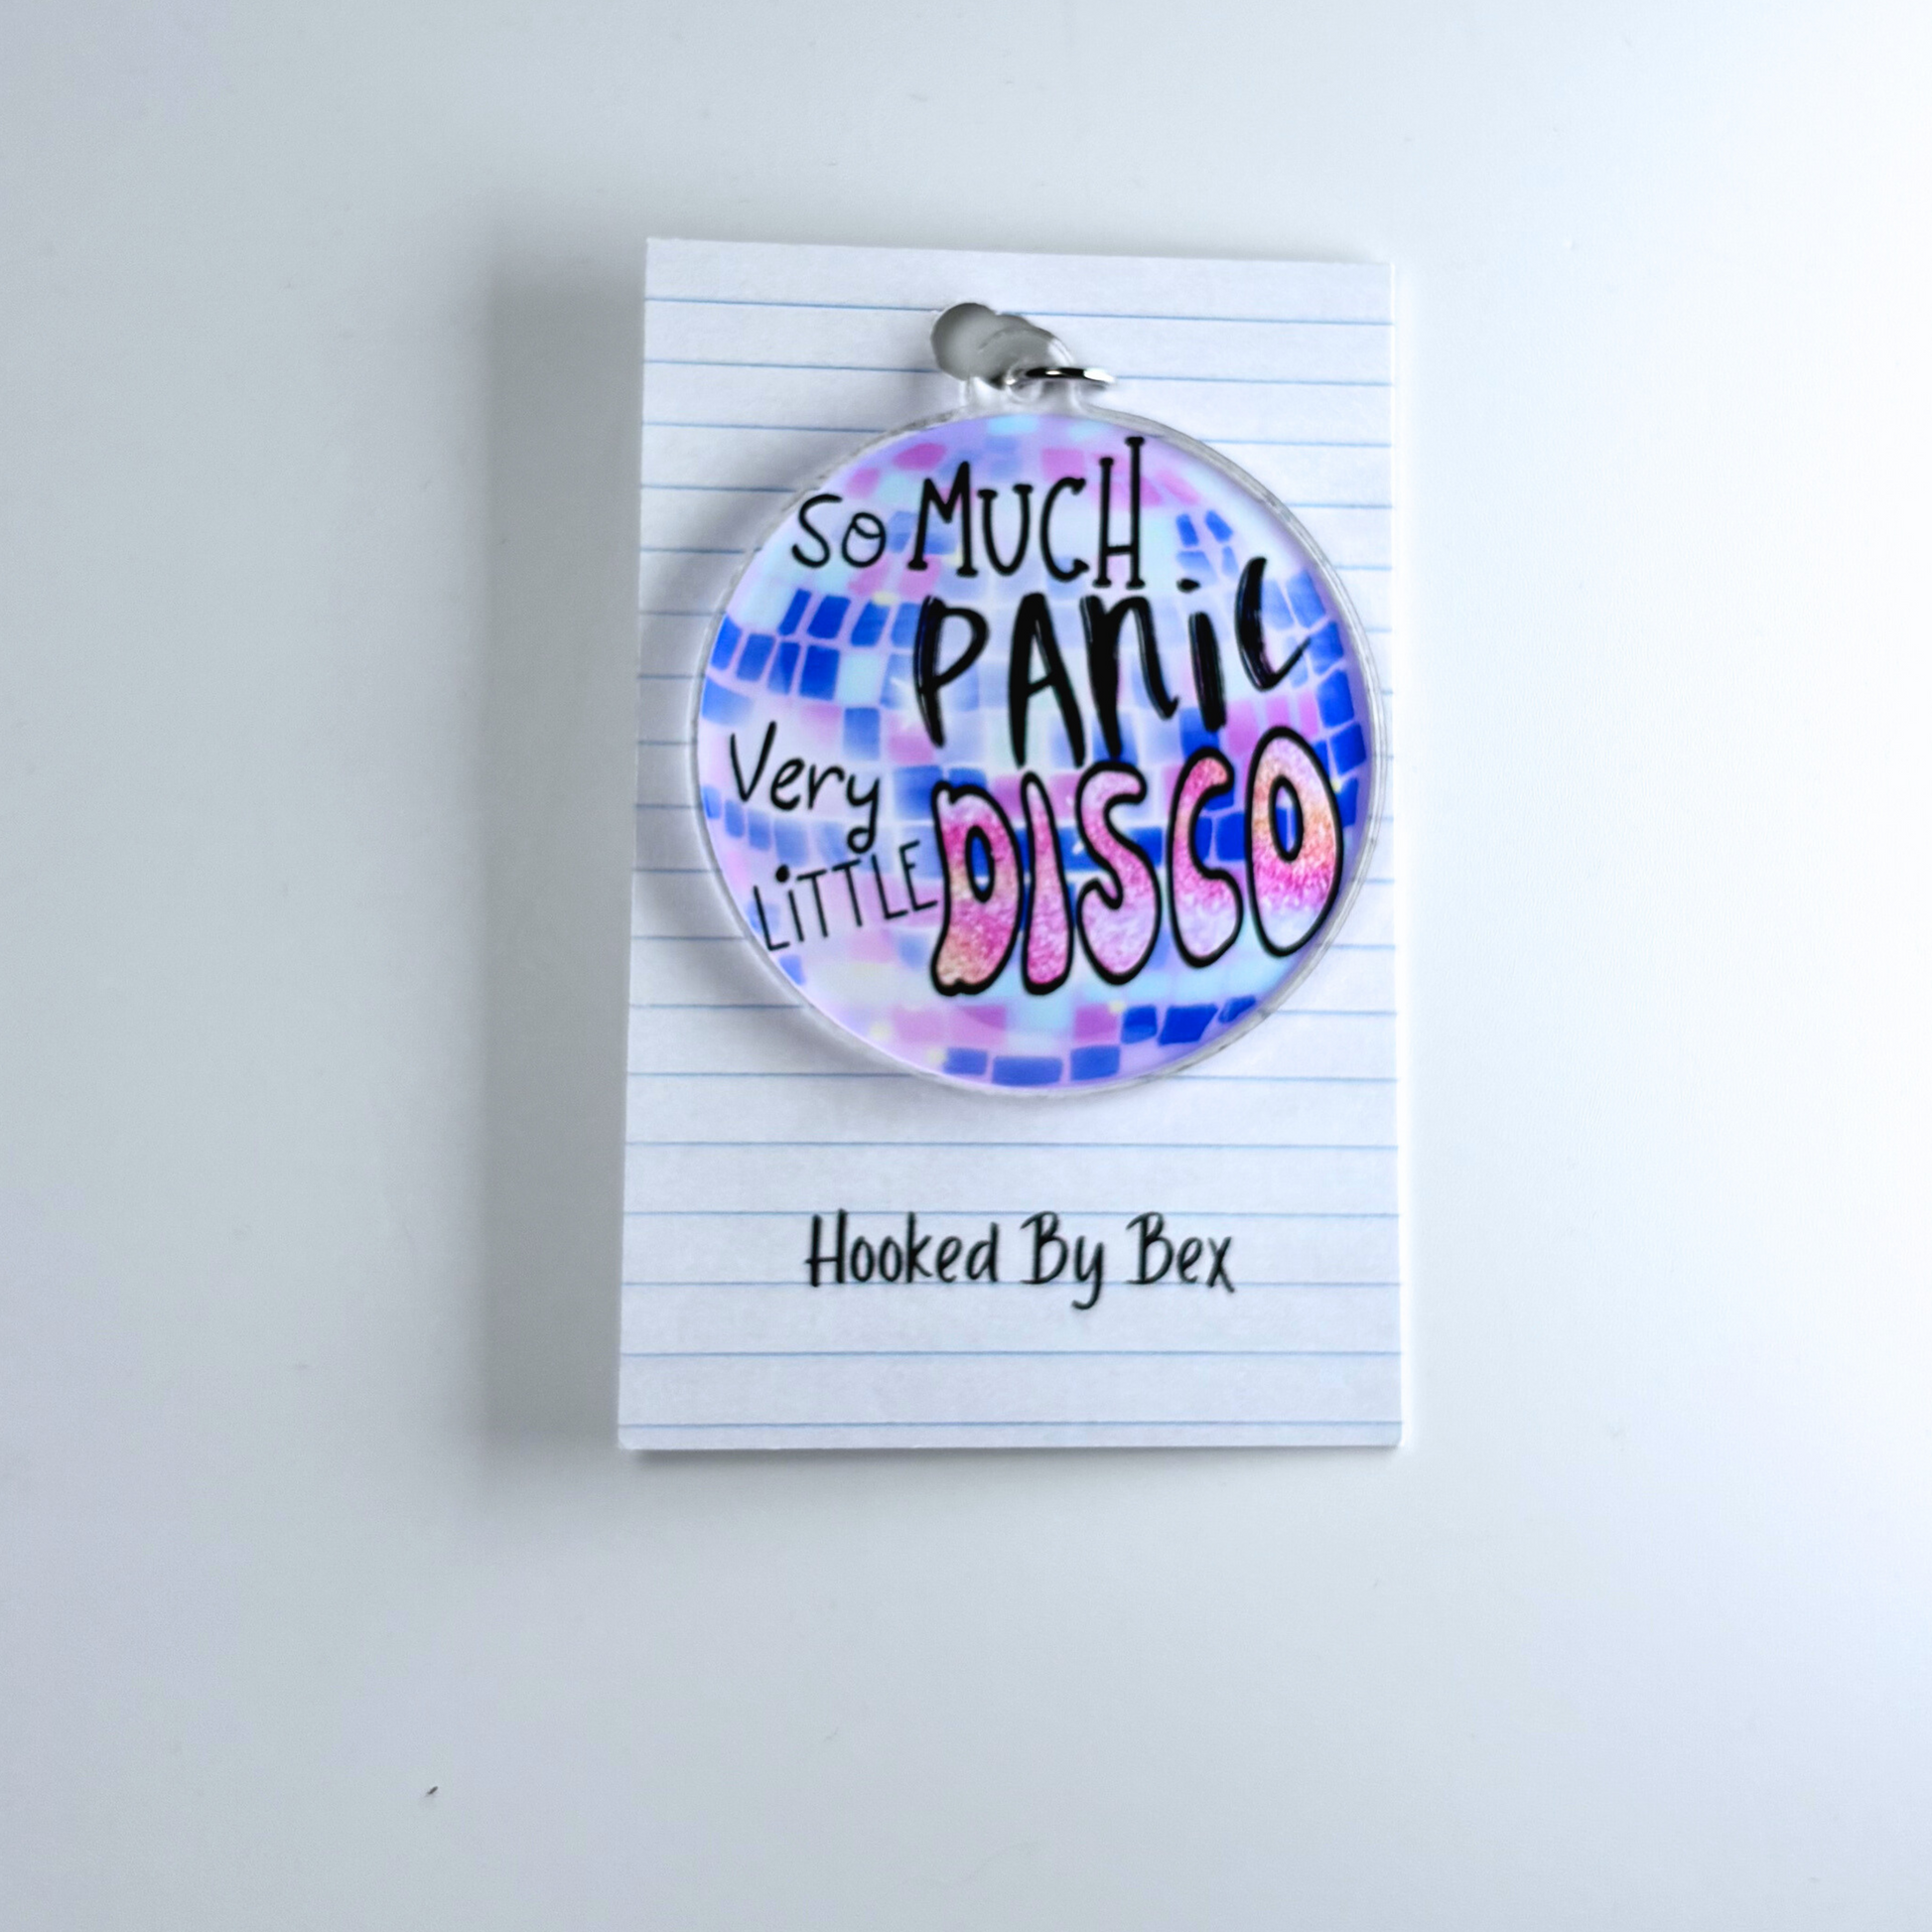 So MUCH
PANiC
Very
LiTTLE DISCO
Hooked By Bex